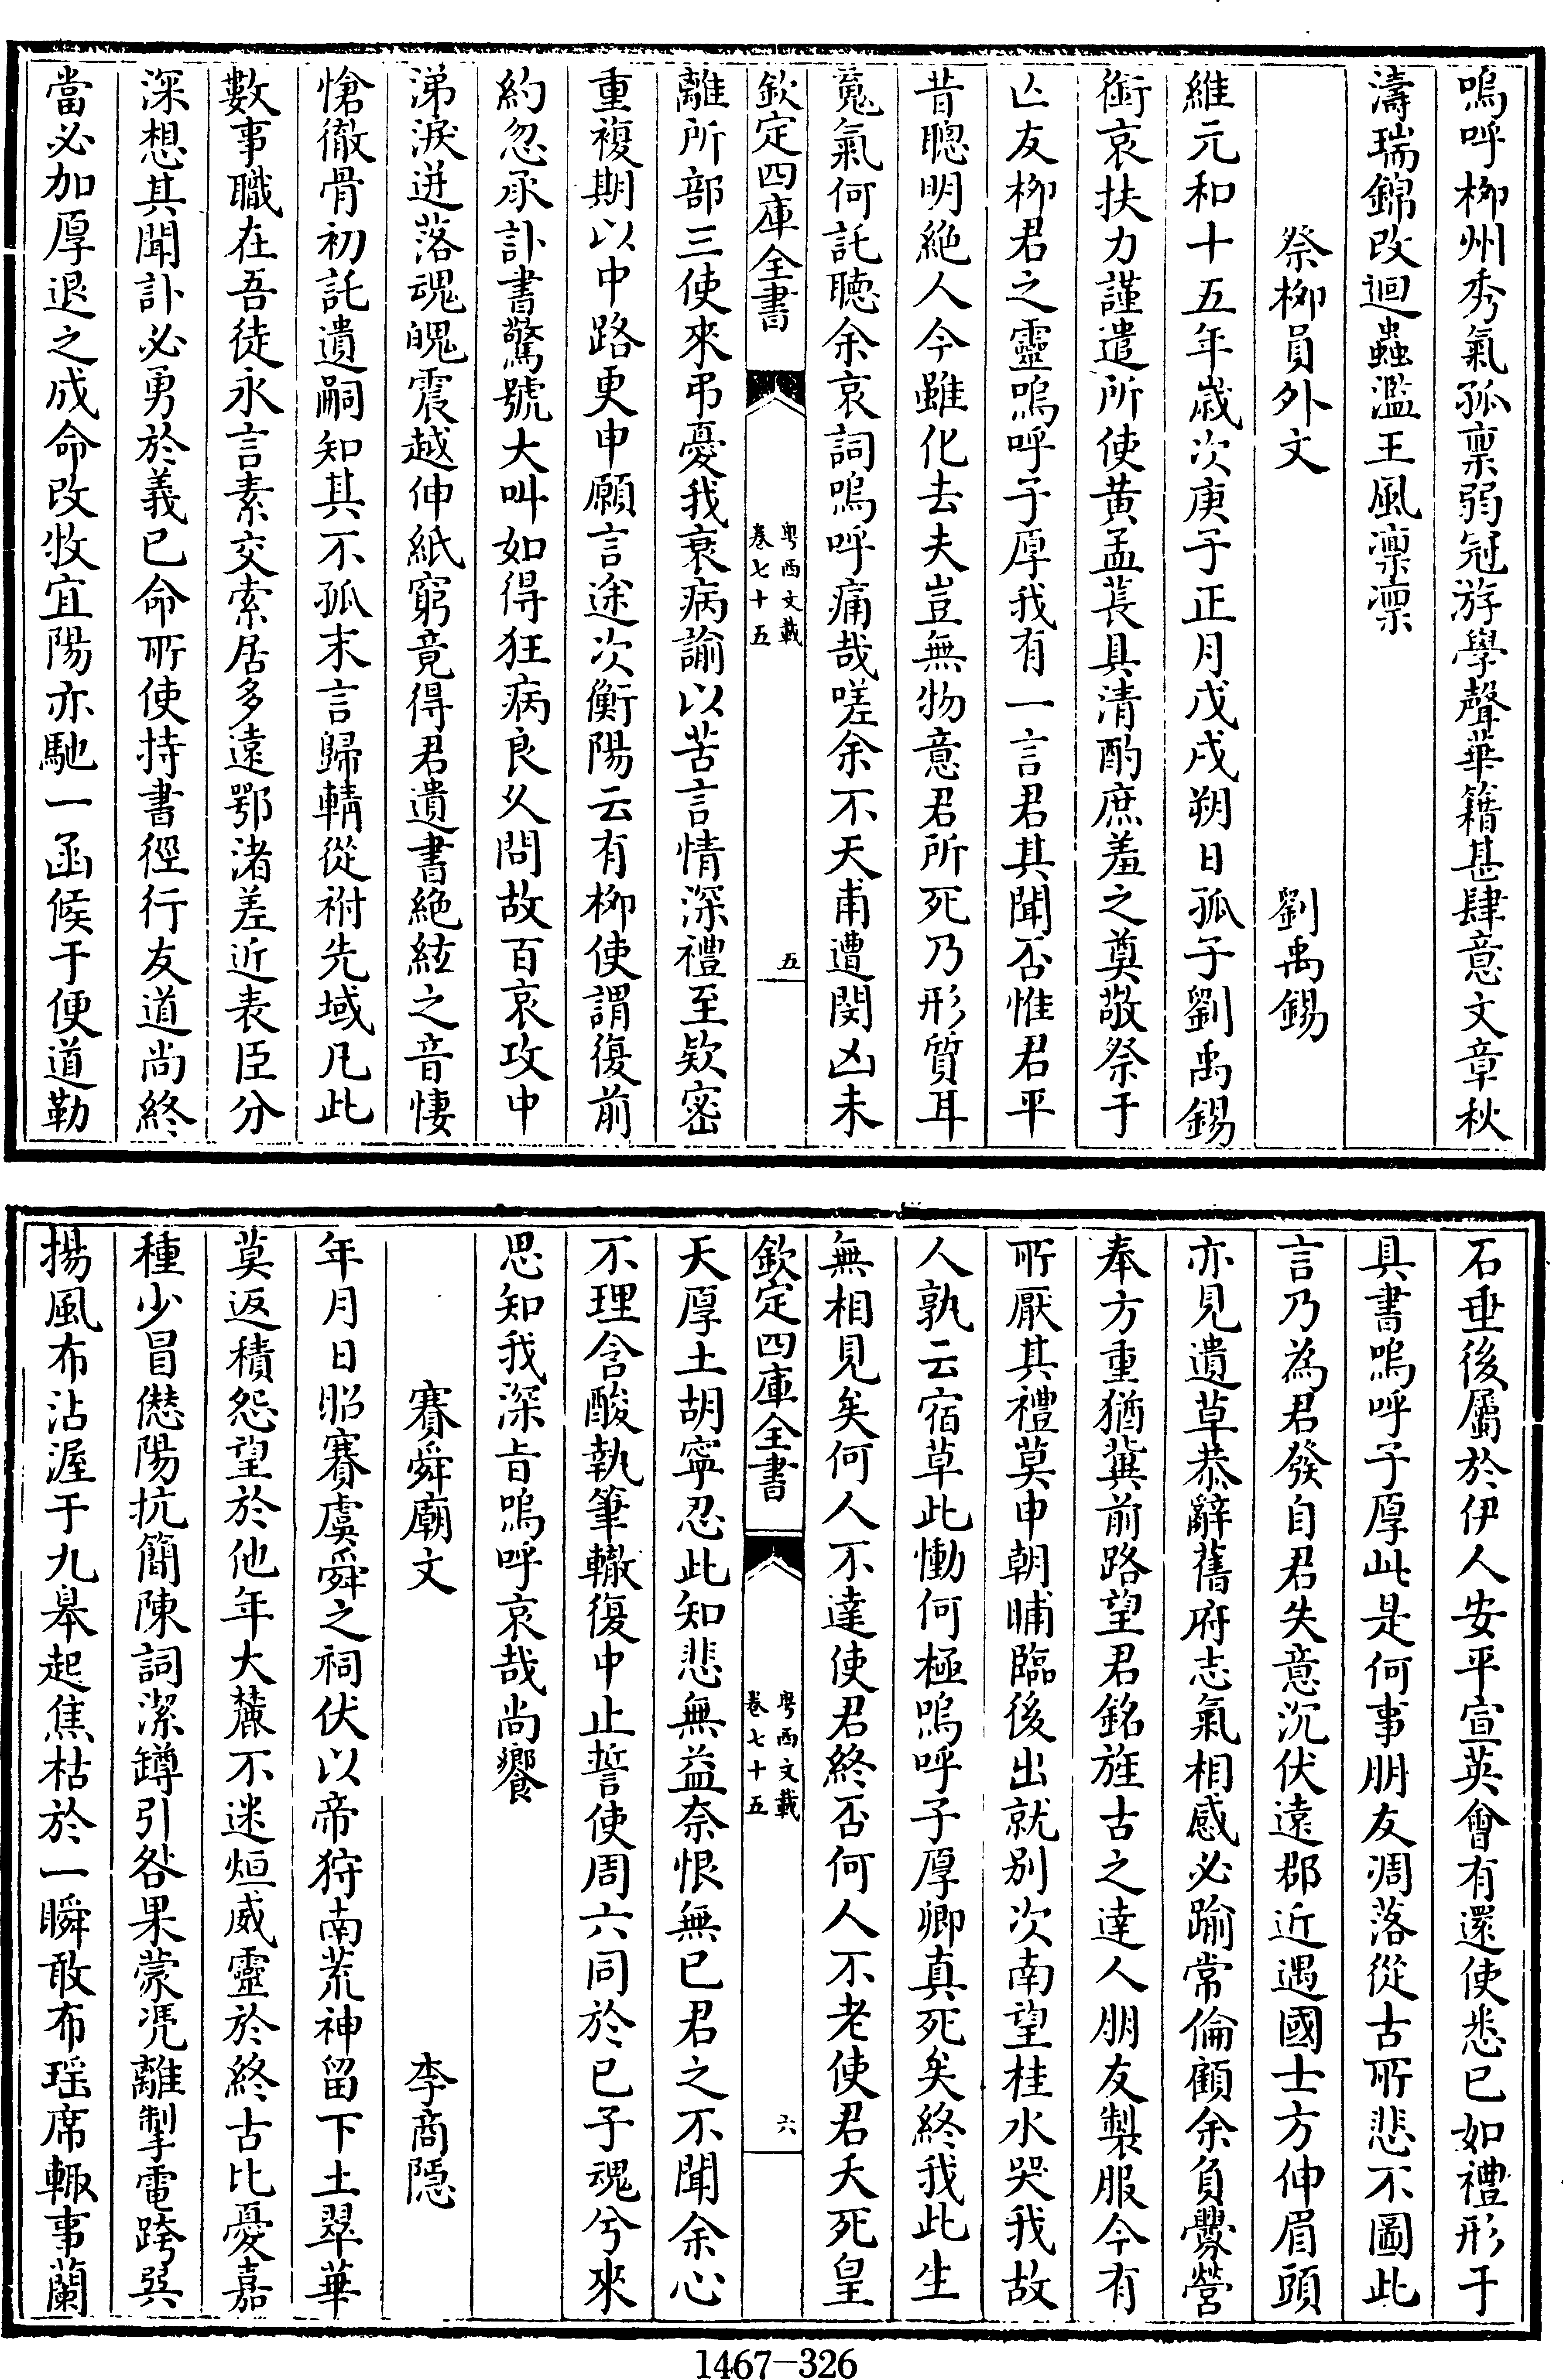 嗚呼柳州秀氣孤禀弱冠游學聲華籍甚肆意文章秋
濤瑞錦改迴蟲濫王風凛凛
祭柳員外文　劉禹錫
維元和十五年歲次庚子正月戊戌朔日孤子劉禹錫
銜哀扶力謹遣所使黄孟萇具清酌庶羞之奠敬祭于
亡友柳君之靈嗚呼子厚我有一言君其聞否惟君平
昔聰明絶人今雖化去夫豈無物意君所死乃形質耳
魂氣何託聴余哀詞嗚呼痛哉嗟余不天甫遭閔凶未
欽定四庫全書　粤西文載卷七十五　五
離所部三使來弔憂我衰病諭以苦言情深禮至欵密
重複期以中路更申願言途次衡陽云有柳使謂復前
約忽承訃書驚號大叫如得狂病良久問故百哀攻中
涕淚迸落魂魄震越伸紙窮竟得君遺書絶絃之音悽
愴徹骨初託遺嗣知其不孤末言歸輤從祔先域凡此
數事職在吾徒永言素交索居多遠鄂渚差近表臣分
深想其聞訃必勇於義已命所使持書徑行友道尚終
當必加厚退之成命改牧宜陽亦馳一函候于便道勒
石垂後屬於伊人安平宣英會有還使悉已如禮形于
具書嗚呼子厚此是何事朋友凋落從古所悲不圖此
言乃為君發自君失意沉伏遠郡近遇國士方伸眉頭
亦見遺草恭辭舊府志氣相感必踰常倫顧余負釁營
奉方重猶冀前路望君銘旌古之達人朋友製服今有
所厭其禮莫申朝晡臨後出就别次南望桂水哭我故
人孰云宿草此慟何極嗚呼子厚卿真死矣終我此生
無相見矣何人不達使君終否何人不老使君夭死皇
欽定四庫全書　粤西文載卷七十五　六
天厚土胡寧忍此知悲無益奈恨無已君之不聞余心
不理含酸執筆輒復中止誓使周六同於已子魂兮來
思知我深旨嗚呼哀哉尚饗
賽舜廟文　李商隠
年月日昭賽虞舜之祠伏以帝狩南荒神留下土翠華
莫返積怨望於他年大麓不迷烜威靈於終古比憂嘉
種少冒愆陽抗簡陳詞潔罇引咎果蒙凴離掣電跨巽
揚風布沾渥于九臯起焦枯於一瞬敢布瑶席輙事蘭
1467-326